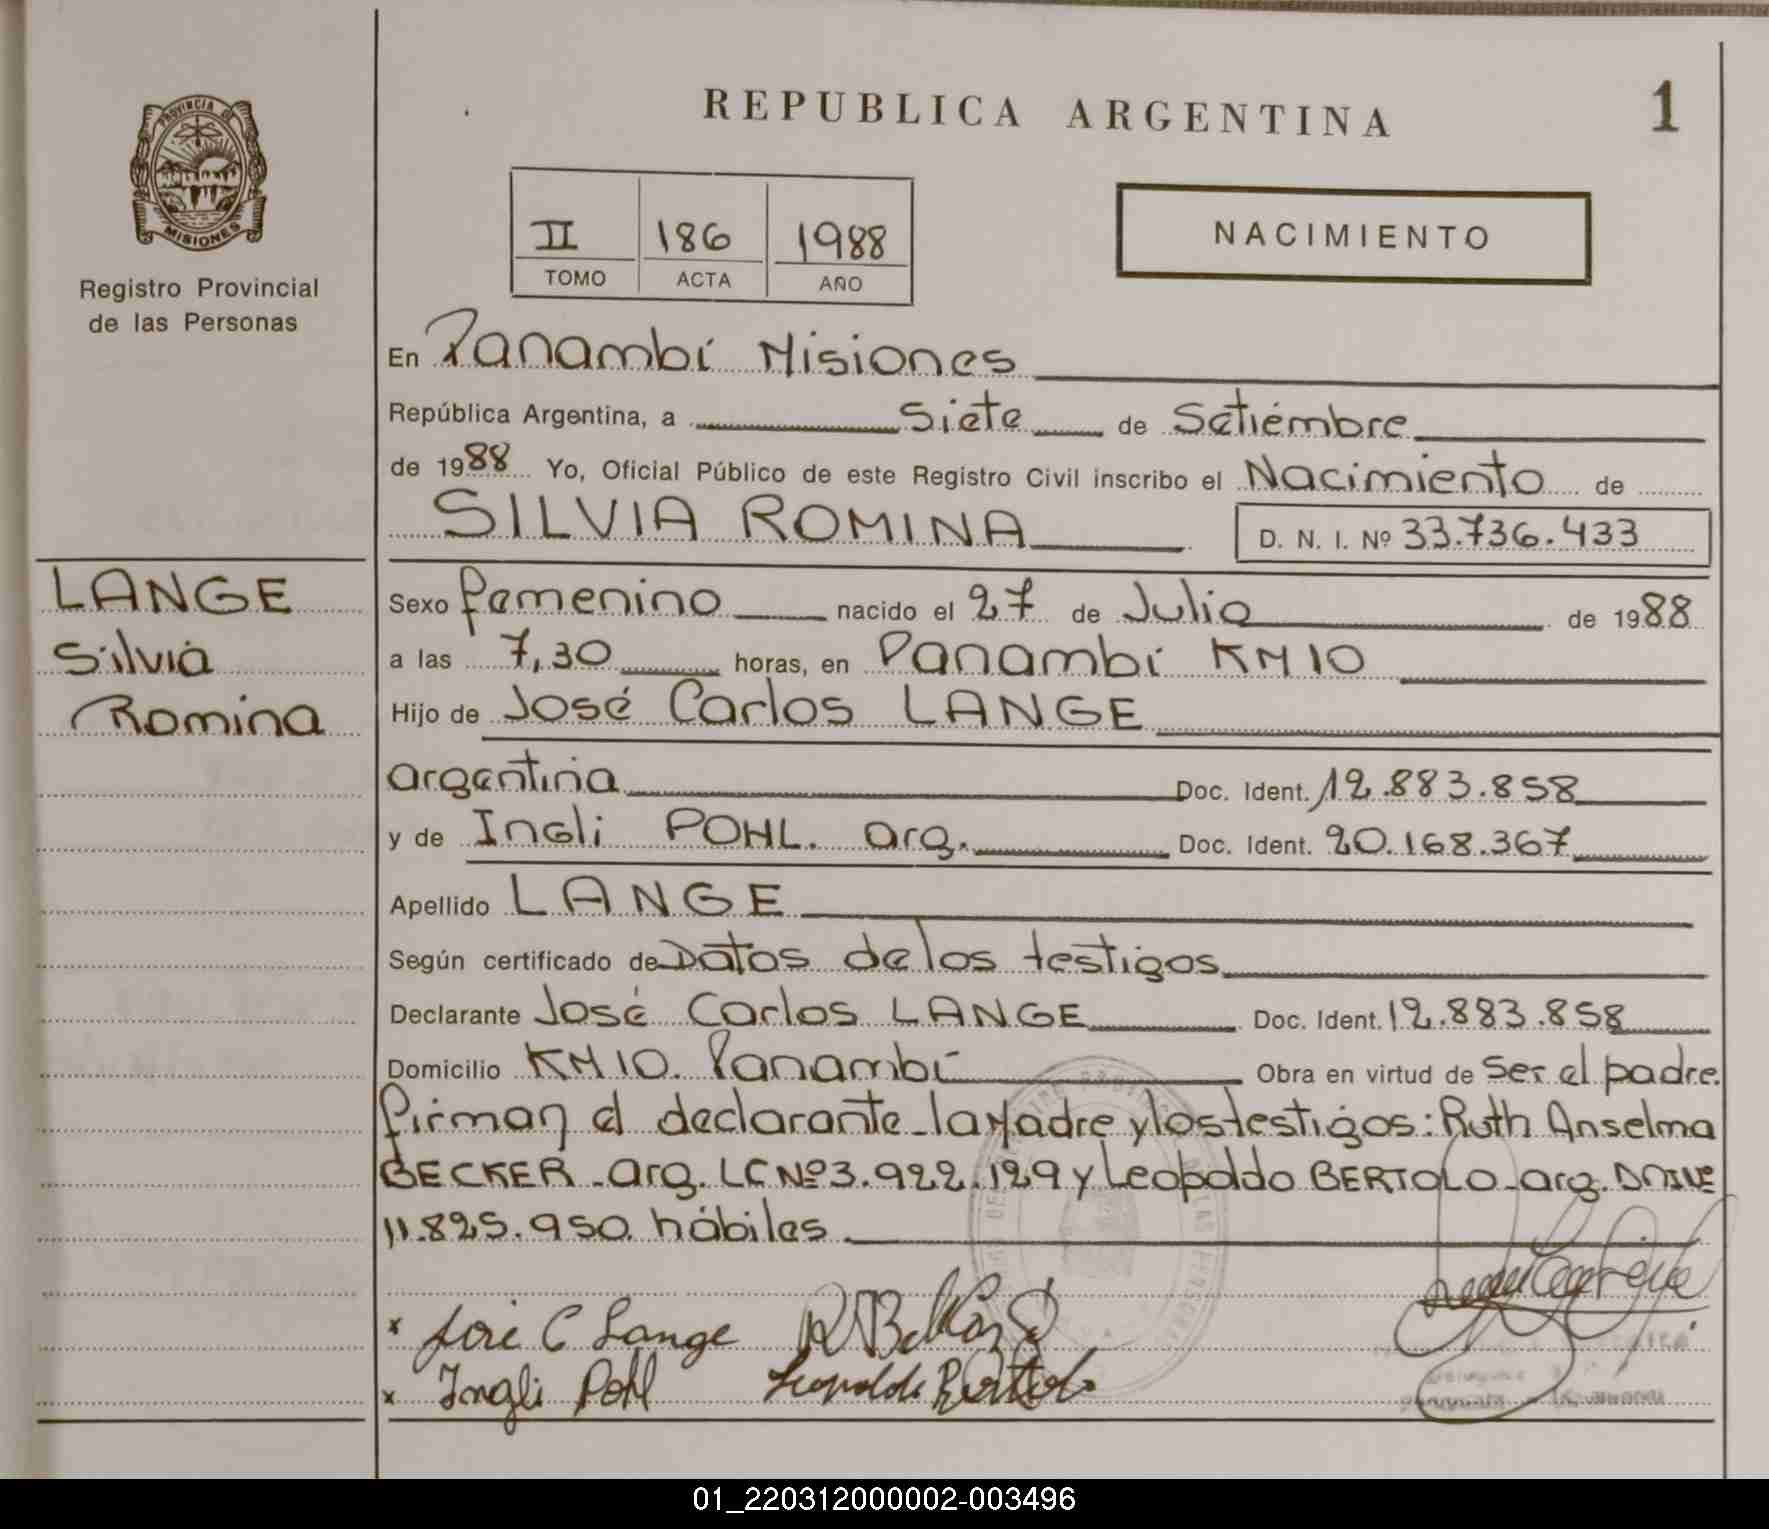 PROVINCIA DE
MISIONES
Registro Provincial
de las Personas
LANGE
Silvia
Romina
REPUBLICA ARGENTINA
1
II 186 1988
TOMO ACTA AÑO
NACIMIENTO
En Panambí Misiones
República Argentina, a siete de Setiémbre
de 1988 Yo, Oficial Público de este Registro Civil inscribo el Nacimiento de
SILVIA ROMINA D. N. I. Nº 33.736.433
Sexo femenino nacido el 27 de Julio de 1988
a las 7,30 horas, en Panambí KM 10
Hijo de José Carlos LANGE
argentina Doc. Ident. 12.883.858
y de Ingli POHL. arg. Doc. Ident. 20.168.367
Apellido LANGE
Según certificado de Datos de los testigos
Declarante José Carlos LANGE Doc. Ident. 12.883.858
Domicilio KM 10. Panambí Obra en virtud de ser el padre.
firman el declarante - la Madre y los testigos: Ruth Anselma
BECKER - arg. LC Nº 3.922.129 y Leopoldo BERTOLO - arg. DNI Nº
11.825.950 hábiles
x José C Lange
x Ingli Pohl Leopoldo Bertolo
01_220312000002-003496